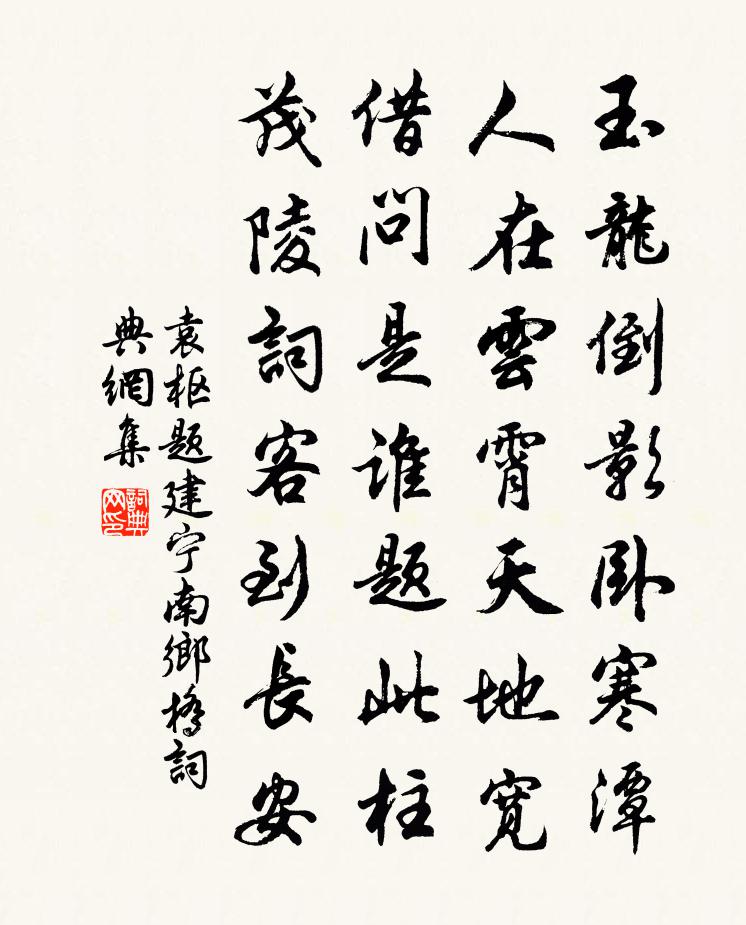 玉龍倒影卧寒潭
人在雲霄天地寬
借问是谁题此柱
茂陵詞客到長安
袁枢题建宁南鄉橋詞
典網集
詞典
网印